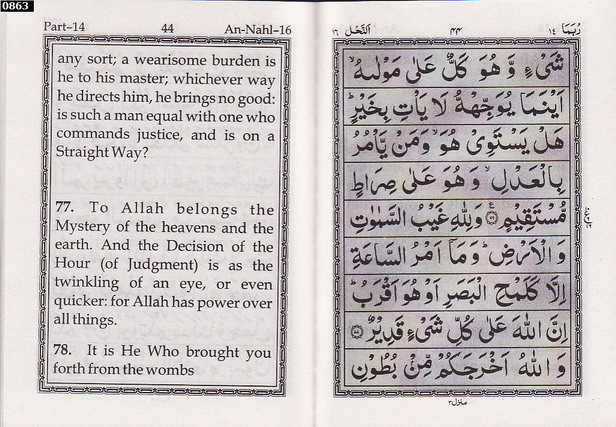 0863
Part-14 44 An-Nahl-16
any sort; a wearisome burden is
he to his master; whichever way
he directs him, he brings no good:
is such a man equal with one who
commands justice, and is on a
Straight Way?
77. To Allah belongs the
Mystery of the heavens and the
earth. And the Decision of the
Hour (of Judgment) is as the
twinkling of an eye, or even
quicker: for Allah has power over
all things.
78. It is He Who brought you
forth from the wombs
رُبَمَا ١٤ ٤٤ اَلنَّحْل ١٦
شَىْءٍ وَّ هُوَ كَلٌّ عَلٰى مَوْلٰىهُ
اَيْنَمَا يُوَجِّهْهُّ لَا يَاْتِ بِخَيْرٍ
هَلْ يَسْتَوِىْ هُوَ وَمَنْ يَّاْمُرُ
بِالْعَدْلِ وَ هُوَ عَلٰى صِرَاطٍ
مُّسْتَقِيْمٍ وَلِلّٰهِ غَيْبُ السَّمٰوٰتِ
وَ الْاَرْضِ وَمَا اَمْرُ السَّاعَةِ
اِلَّا كَلَمْحِ الْبَصَرِ اَوْ هُوَ اَقْرَبُ
اِنَّ اللّٰهَ عَلٰى كُلِّ شَىْءٍ قَدِيْرٌ ٧٧
وَ اللّٰهُ اَخْرَجَكُمْ مِّنْۢ بُطُوْنِ
منزل ٣